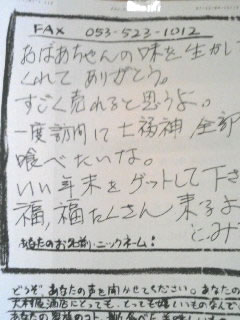 FAX 053-523-1012
おばあちゃんの味を生かし
くれて ありがとう。
すごく売れると思うよ。
一度訪問に七福神全部
喰べたいな。
いい年末をゲットして下さ
福,福たくさん 来るよ
とみ
あなたのお名前・ニックネーム:
どうぞ、あなたの声を聞かせてください。あなたの
大村屋酒店にとっても、とっても嬉しいものなんで